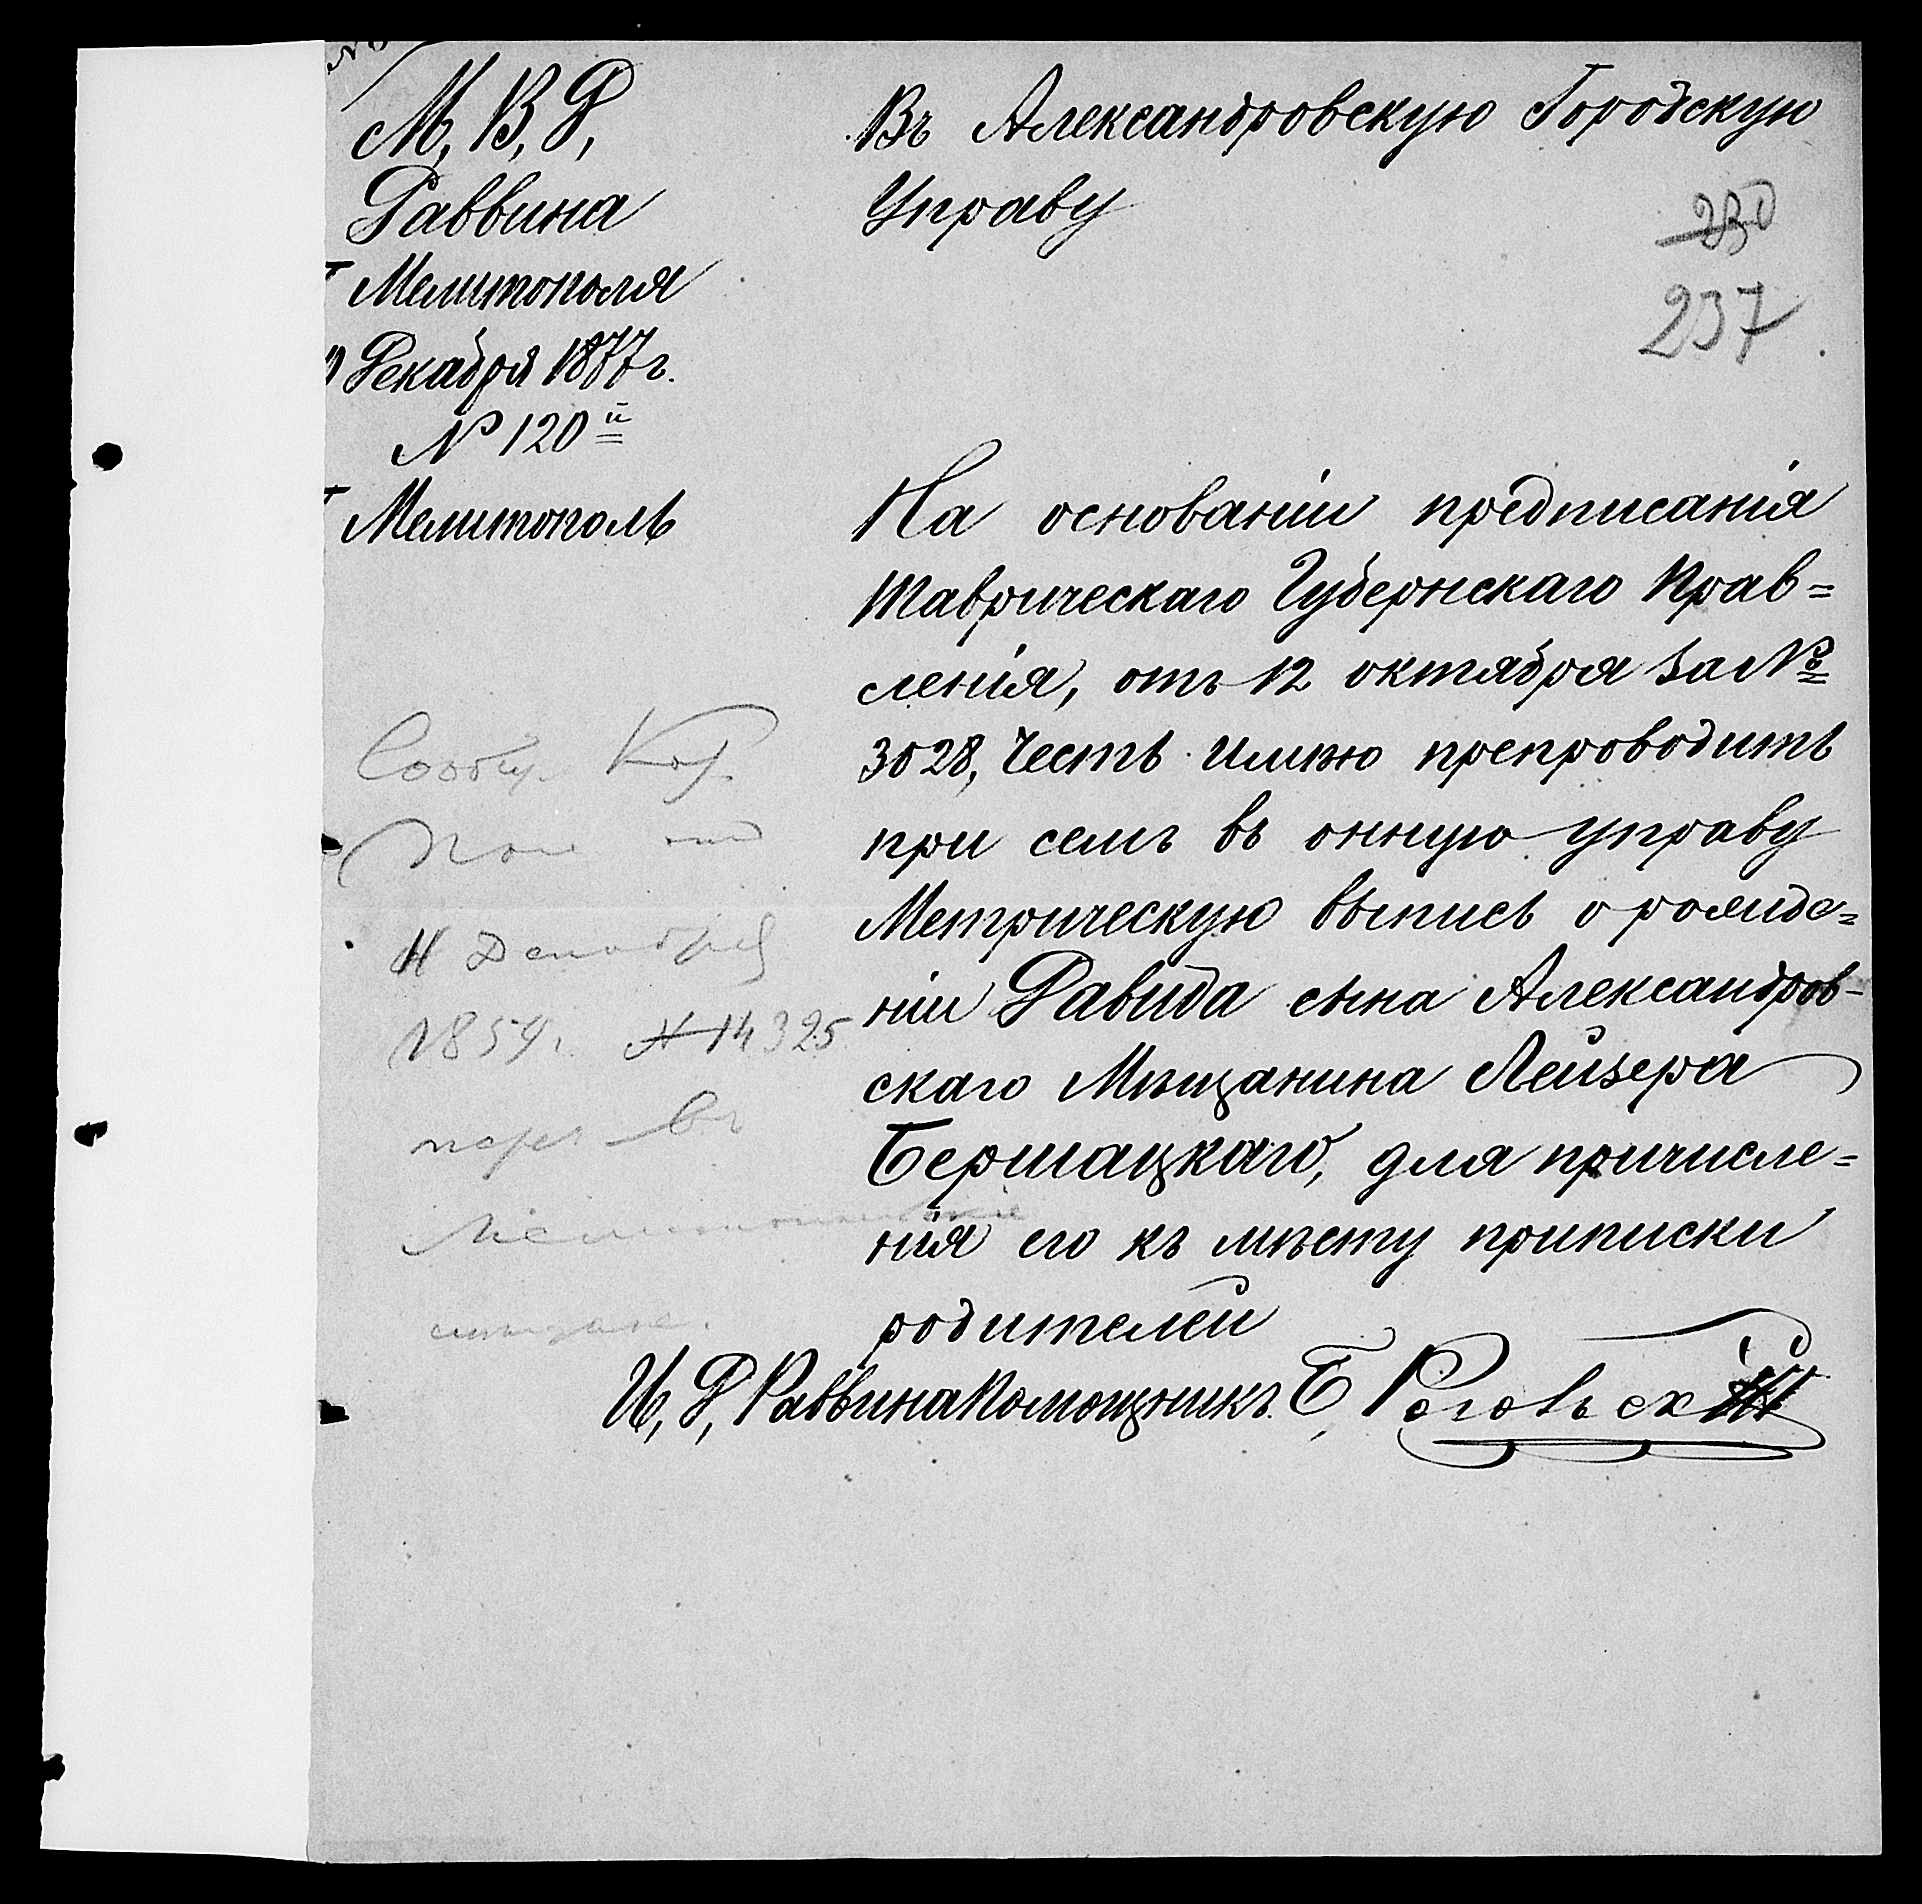 М, В, Д,
Раввина
Мелитополя
Декабря 1877 г.
№ 120й
Мелитополь
Въ Александровскую Городскую
Управу
230
237
На основаніи предписанія
Таврическаго Губернскаго Прав=
ленія, отъ 12 октября за №
3028, Честь имѣю препроводить
при семъ въ онную управу
Метрическую выпись о рожде=
ніи Давида сына Александров-
скаго Мѣщанина Лейзера
Бершацкаго, для причисле=
нія его къ мѣсту приписки
родителей
И, Д, Раввина Помощникъ Б, Рогольскій
Сообщ.
Декабря
1859г. № 14325
въ